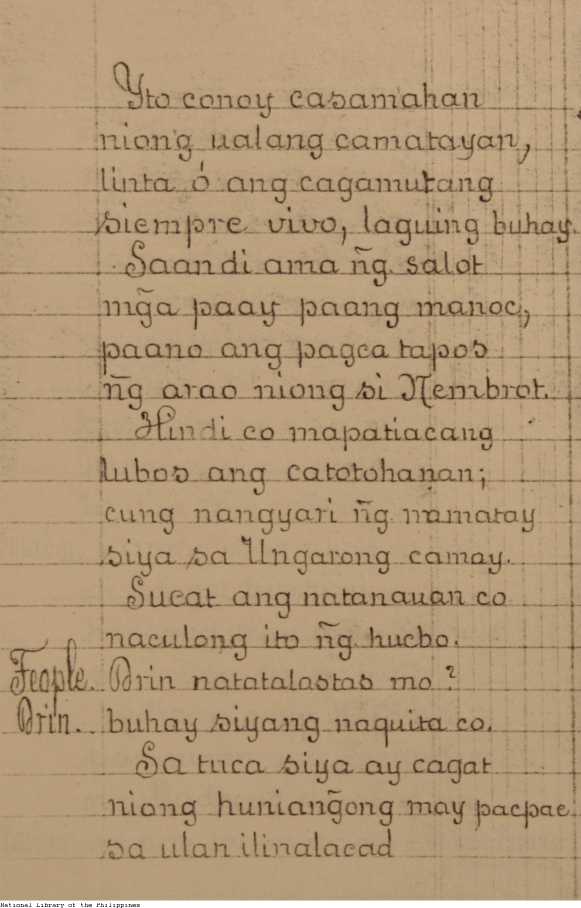 Yto conoy casamahan
niong ualang camatayan,
linta ó ang cagamutang
siempre vivo, laguing buhay.
Saan di ama ñg salot
mg̃a paay paang manoc,
paano ang pagca tapos
ñg arao niong si Nembrot.
Hindi co mapatiacang
lubos ang catotohanan;
cung nangyari ñg mamatay
siya sa Ungarong camay.
Sucat ang natanauan co
naculong ito ñg hucbo.
Feople. Orin natatalastas mo?
Orin. buhay siyang naquita co.
Sa tuca siya ay cagat
niong huniang̃ong may pacpac
sa ulan ilinalacad
National Library of the Philippines